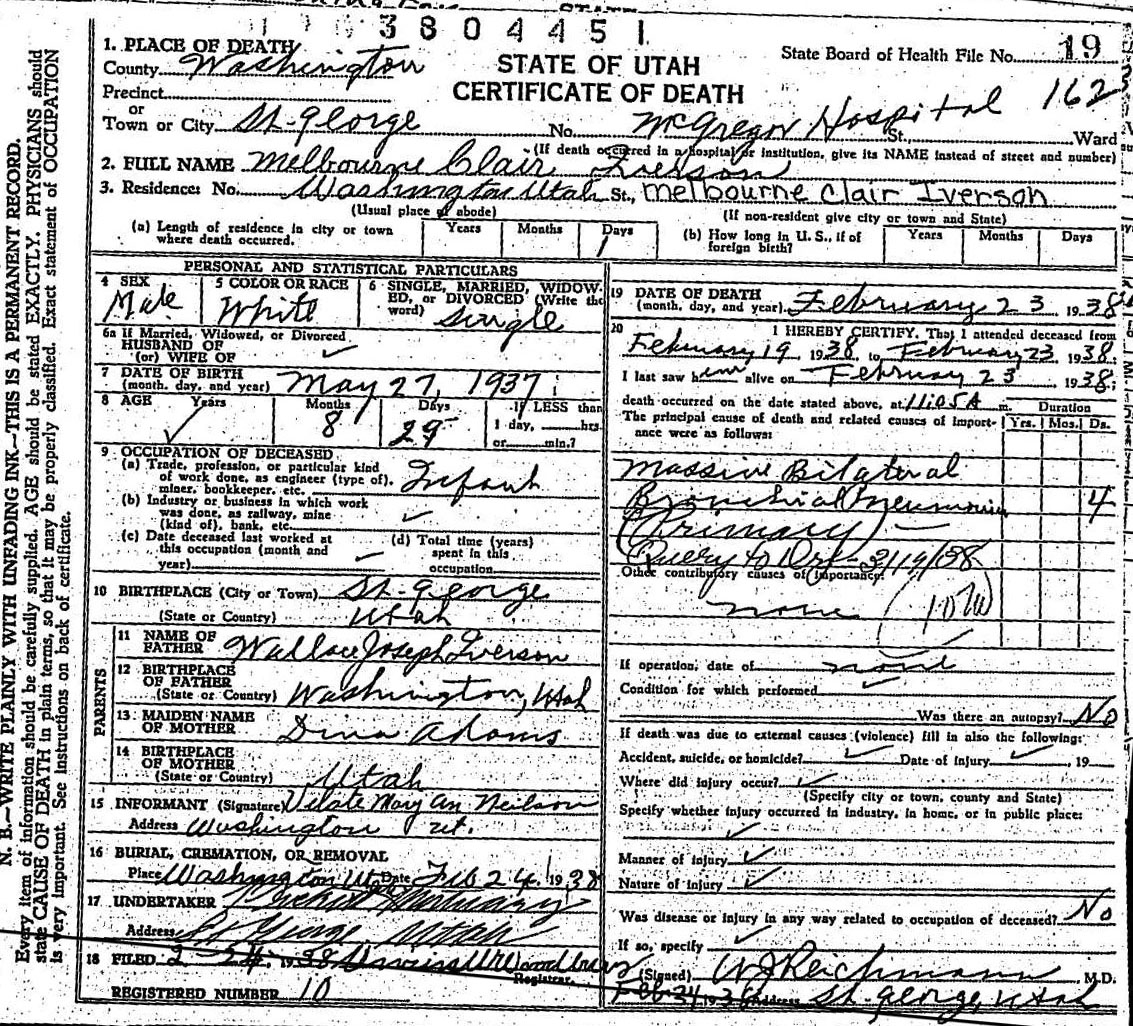 3804451
1. PLACE OF DEATH
County Washington
STATE OF UTAH
CERTIFICATE OF DEATH
State Board of Health File No. 19
162
Precinct
or
Town or City St. George No. McGregor Hospital St. Ward
(If death occurred in a hospital or institution, give its NAME instead of street and number)
2. FULL NAME Melbourne Clair Iverson
3. Residence: No. Washington Utah St., Melbourne Clair Iverson
(Usual place of abode) (If non-resident give city or town and State)
(a) Length of residence in city or town where death occurred. Years Months Days 1
(b) How long in U. S., if of foreign birth? Years Months Days
PERSONAL AND STATISTICAL PARTICULARS
4 SEX Male
5 COLOR OR RACE White
6 SINGLE, MARRIED, WIDOWED, or DIVORCED (Write the word) Single
6a If Married, Widowed, or Divorced
HUSBAND OF
(or) WIFE OF
7 DATE OF BIRTH
(month, day, and year) May 27, 1937
8 AGE Years Months 8 Days 29 If LESS than
1 day, hrs.
or min.?
9 OCCUPATION OF DECEASED
(a) Trade, profession, or particular kind
of work done, as engineer (type of),
miner, bookkeeper, etc. Infant
(b) Industry or business in which work
was done, as railway, mine
(kind of), bank, etc.
(c) Date deceased last worked at
this occupation (month and
year)
(d) Total time (years)
spent in this
occupation
10 BIRTHPLACE (City or Town) St. George
(State or Country) Utah
PARENTS
11 NAME OF
FATHER Wallace Joseph Iverson
12 BIRTHPLACE
OF FATHER
(State or Country) Washington, Utah
13 MAIDEN NAME
OF MOTHER Dina Adams
14 BIRTHPLACE
OF MOTHER
(State or Country) Utah
15 INFORMANT (Signature) Velate Mary An Neilson
Address Washington Ut.
16 BURIAL, CREMATION, OR REMOVAL
Place Washington Ut. Date Feb 24, 1938
17 UNDERTAKER Mortuary
Address St George Utah
18 FILED 2-24, 1938
Registrar.
REGISTERED NUMBER 10
19 DATE OF DEATH
(month, day, and year) February 23 1938
20 I HEREBY CERTIFY, That I attended deceased from
February 19 1938 to February 23 1938;
I last saw him alive on February 23 1938;
death occurred on the date stated above, at 11:05 A m.
Duration
The principal cause of death and related causes of importance were as follows:
Yrs. Mos. Ds.
Massive Bilateral
Bronchial Pneumonia 4
(Primary)
Query to Dr. 3/19/38
Other contributory causes of importance:
none
107a
If operation, date of none
Condition for which performed
Was there an autopsy? No
If death was due to external causes (violence) fill in also the following:
Accident, suicide, or homicide? Date of injury , 19
Where did injury occur?
(Specify city or town, county and State)
Specify whether injury occurred in industry, in home, or in public place:
Manner of injury
Nature of injury
Was disease or injury in any way related to occupation of deceased? No
If so, specify
(Signed) W J Reichmann M.D.
Feb 24 1938 Address St. George, Utah
N. B.—WRITE PLAINLY WITH UNFADING INK—THIS IS A PERMANENT RECORD.
Every item of information should be carefully supplied. AGE should be stated EXACTLY. PHYSICIANS should
state CAUSE OF DEATH in plain terms, so that it may be properly classified. Exact statement of OCCUPATION
is very important. See instructions on back of certificate.